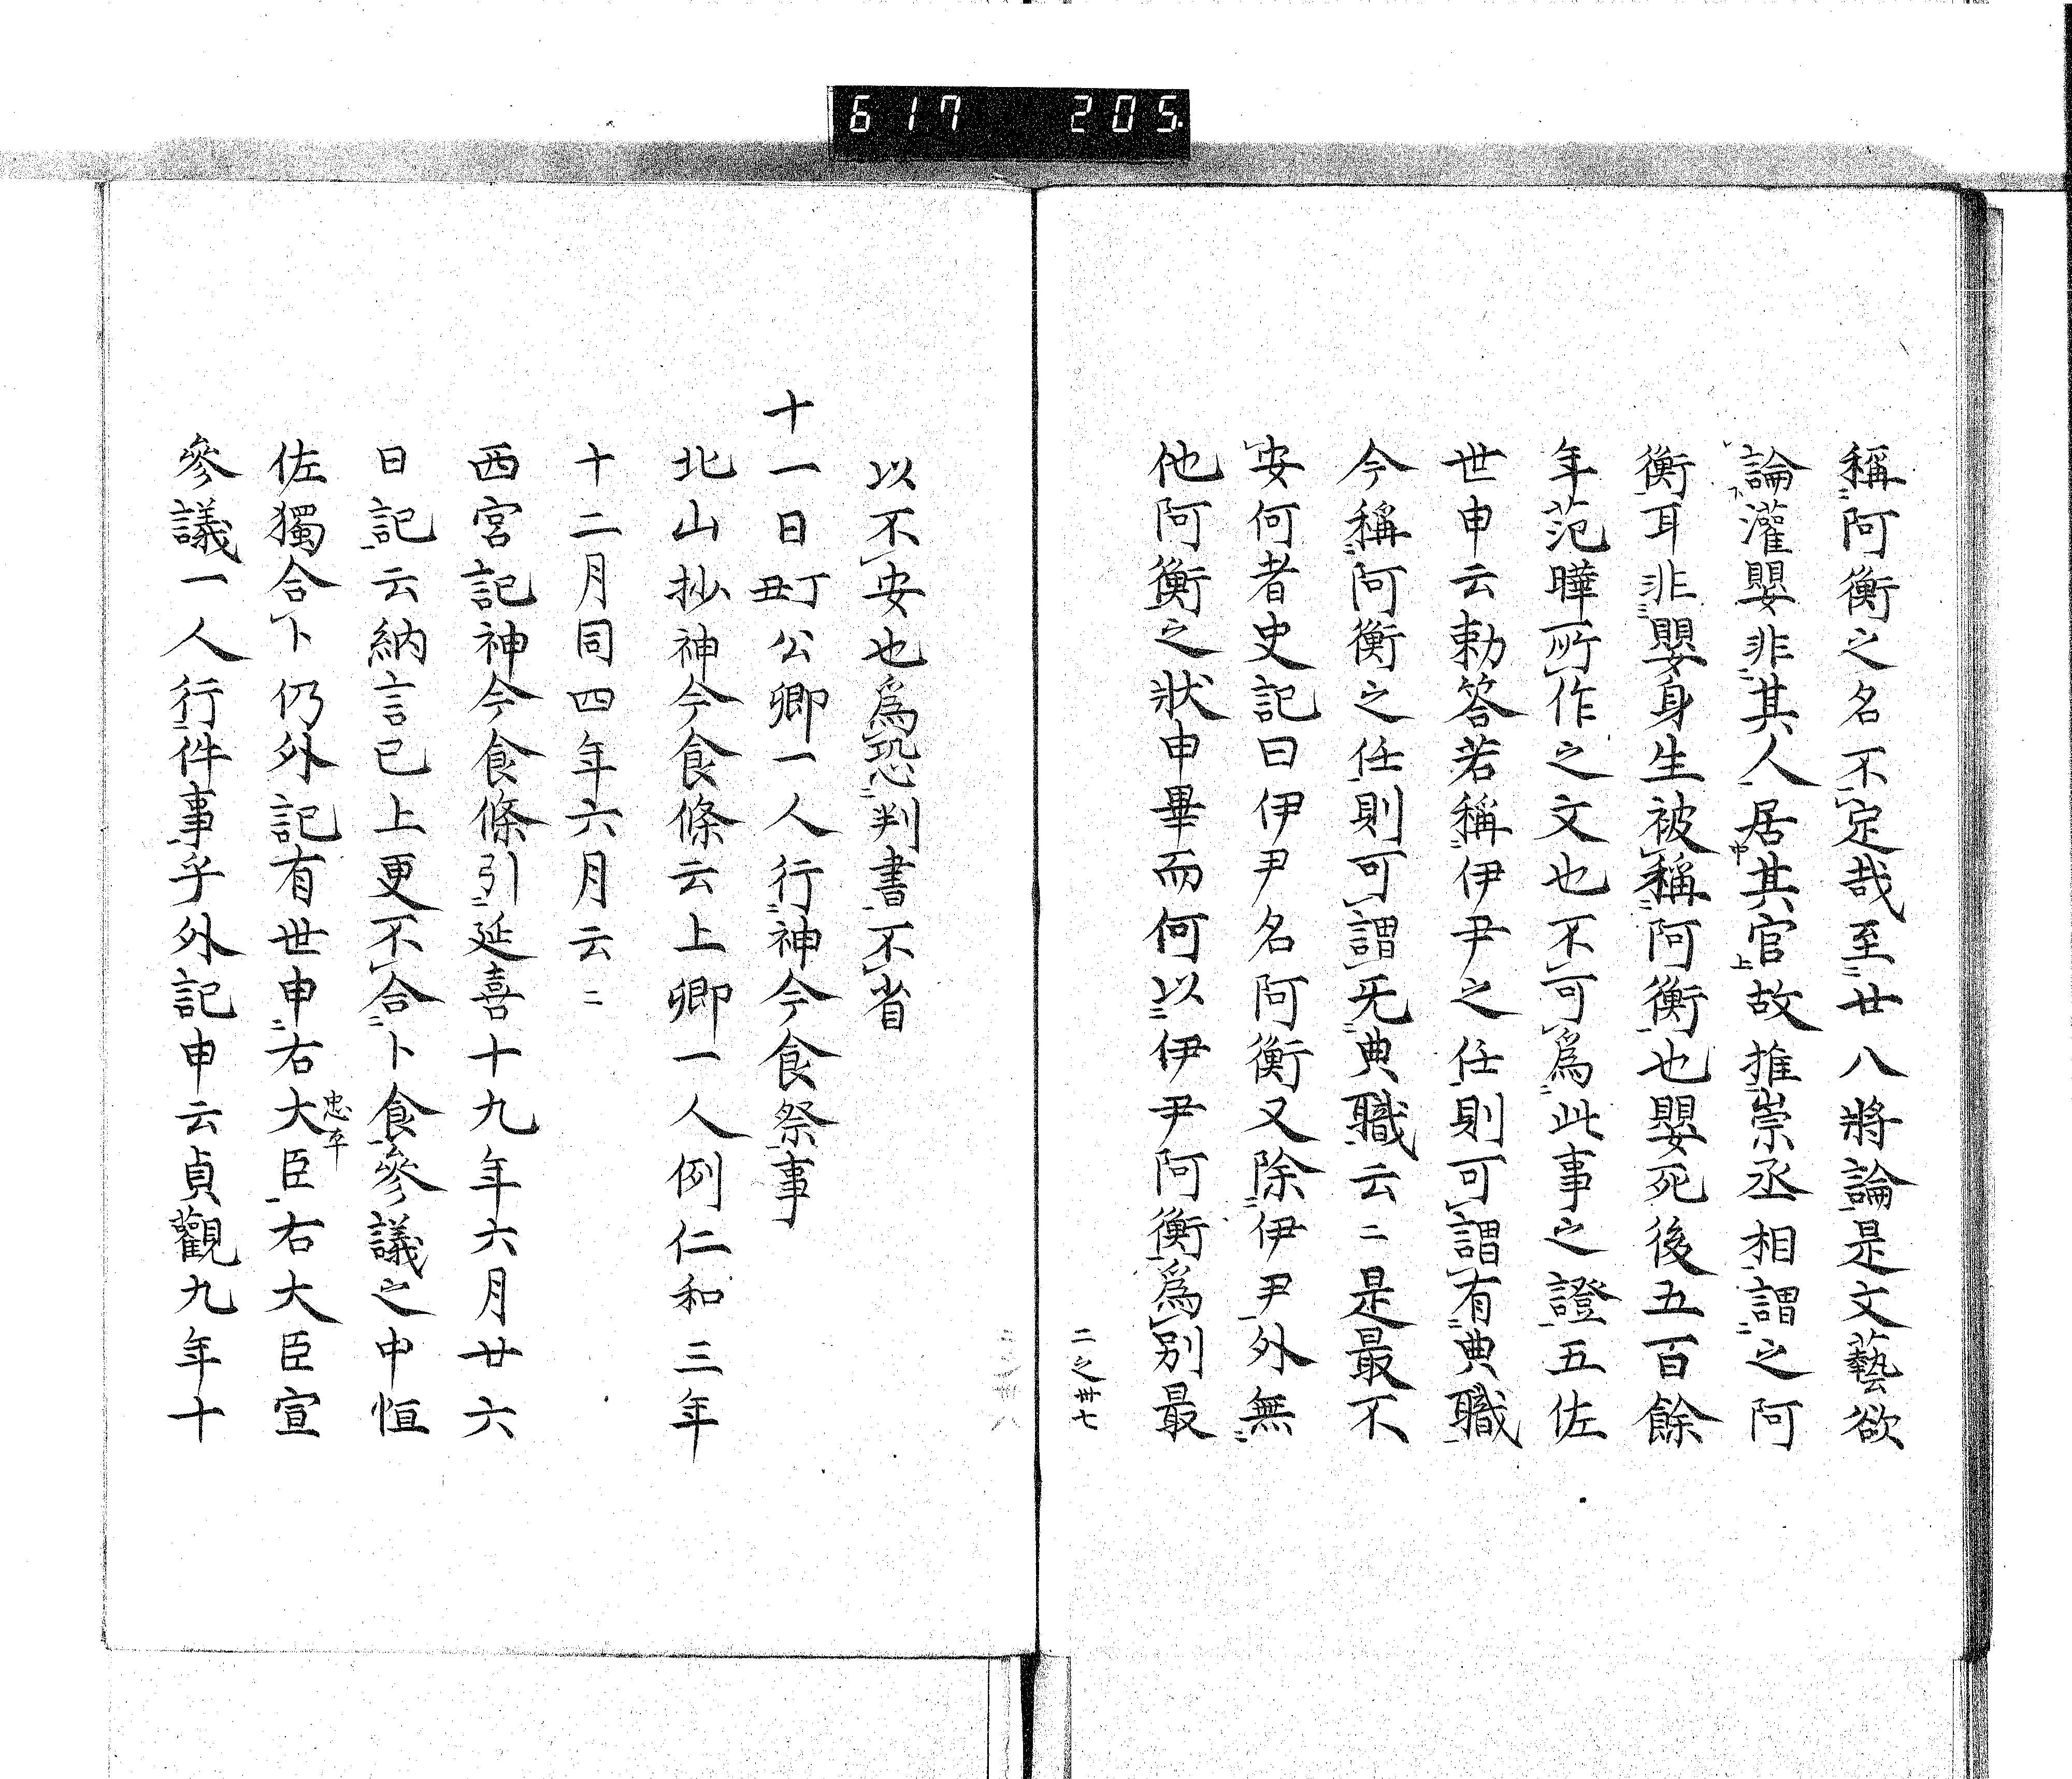 617 205
稱阿衡之名不定哉至廿八將論是文藝欲
論灌嬰非其人居其官故推崇丞相謂之阿
衡耳非嬰身生被稱阿衡也嬰死後五百餘
年范曄所作之文也不可爲此事之證五佐
世申云勅答若稱伊尹之任則可謂有典職
今稱阿衡之任則可謂旡典職云〻是最不
安何者史記曰伊尹名阿衡又除伊尹外無
他阿衡之狀申畢而何以伊尹阿衡爲別最
二之卅七
以不安也爲恐判書不省
十一日丁丑公卿一人行神今食祭事
北山抄神今食條云上卿一人例仁和三年
十二月同四年六月云〻
西宮記神今食條引延喜十九年六月廿六
日記云納言已上更不合卜食參議之中恒
佐獨合卜仍外記有世申右大臣忠平右大臣宣
參議一人行件事乎外記申云貞觀九年十